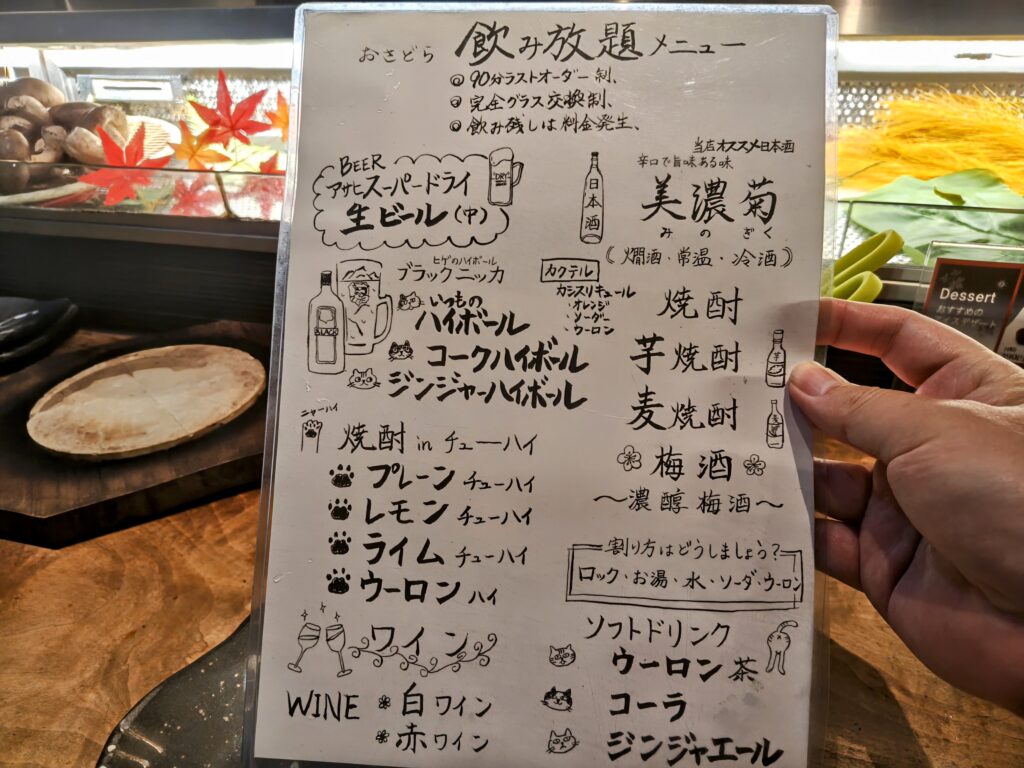 おさどら 飲み放題メニュー
◎90分ラストオーダー制、
◎完全グラス交換制、
◎飲み残しは料金発生、
BEER
アサヒスーパードライ
生ビール(中)
DRY
ヒゲのハイボール
ブラックニッカ
いつもの
ハイボール
コークハイボール
ジンジャーハイボール
BLACK
ニャーハイ
焼酎inチューハイ
プレーンチューハイ
レモンチューハイ
ライムチューハイ
ウーロンハイ
ワイン
WINE 白ワイン
赤ワイン
当店オススメ日本酒
辛口で旨味ある味
日本酒
美濃菊
みのぎく
(燗酒・常温・冷酒)
カクテル
カシスリキュール
・オレンジ
・ソーダー
・ウーロン
焼酎
芋焼酎
芋
麦焼酎
麦
梅酒
〜濃醇梅酒〜
割り方はどうしましょう?
ロック・お湯・水・ソーダ・ウーロン
ソフトドリンク
ウーロン茶
コーラ
ジンジャエール
Dessert
おすすめの